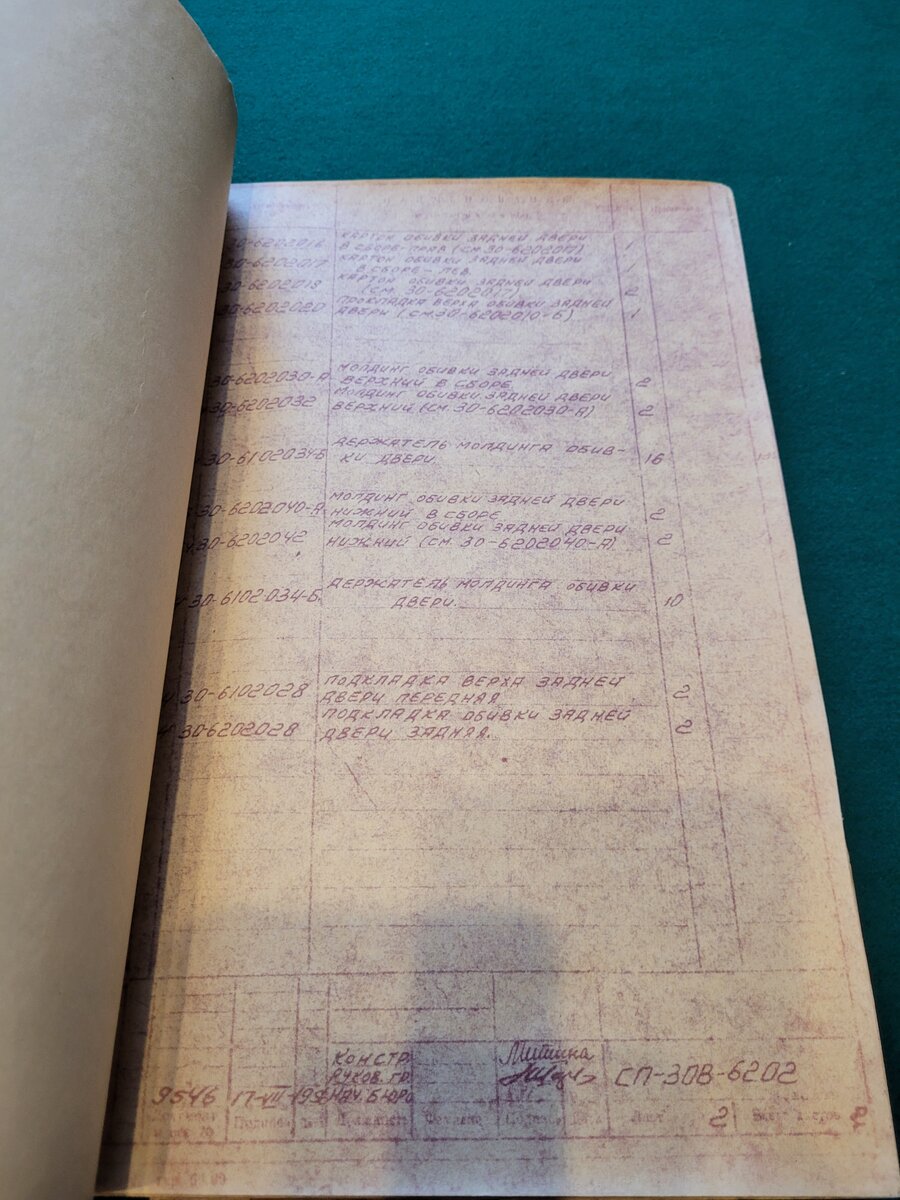 30-6202016 КАРТОН ОБИВКИ ЗАДНЕЙ ДВЕРИ
В СБОРЕ-ПРАВ (СМ.30-6202017) 1
30-6202017 КАРТОН ОБИВКИ ЗАДНЕЙ ДВЕРИ
В СБОРЕ - ЛЕВ. 1
30-6202018 КАРТОН ОБИВКИ ЗАДНЕЙ ДВЕРИ
(СМ. 30-6202017) 2
30-6202020 ПРОКЛАДКА ВЕРХА ОБИВКИ ЗАДНЕЙ
ДВЕРИ (СМ.30-6202010-Б) 1
30-6202030-А МОЛДИНГ ОБИВКИ ЗАДНЕЙ ДВЕРИ
ВЕРХНИЙ В СБОРЕ 2
30-6202032 МОЛДИНГ ОБИВКИ ЗАДНЕЙ ДВЕРИ
ВЕРХНИЙ (СМ 30-6202030-А) 2
30-6102034-Б ДЕРЖАТЕЛЬ МОЛДИНГА ОБИВ-
КИ ДВЕРИ. 16
30-6202040-А МОЛДИНГ ОБИВКИ ЗАДНЕЙ ДВЕРИ
НИЖНИЙ В СБОРЕ 2
30-6202042 МОЛДИНГ ОБИВКИ ЗАДНЕЙ ДВЕРИ
НИЖНИЙ (СМ. 30-6202040-А) 2
30-6102034-Б ДЕРЖАТЕЛЬ МОЛДИНГА ОБИВКИ
ДВЕРИ. 10
30-6102028 ПОДКЛАДКА ВЕРХА ЗАДНЕЙ
ДВЕРИ ПЕРЕДНЯЯ 2
30-6202028 ПОДКЛАДКА ОБИВКИ ЗАДНЕЙ
ДВЕРИ ЗАДНЯЯ. 2
КОНСТР Митина
РУКОВ. ГР.
9546 17-VII-195 НАЧ. БЮРО СП-30В-6202
Лист 2